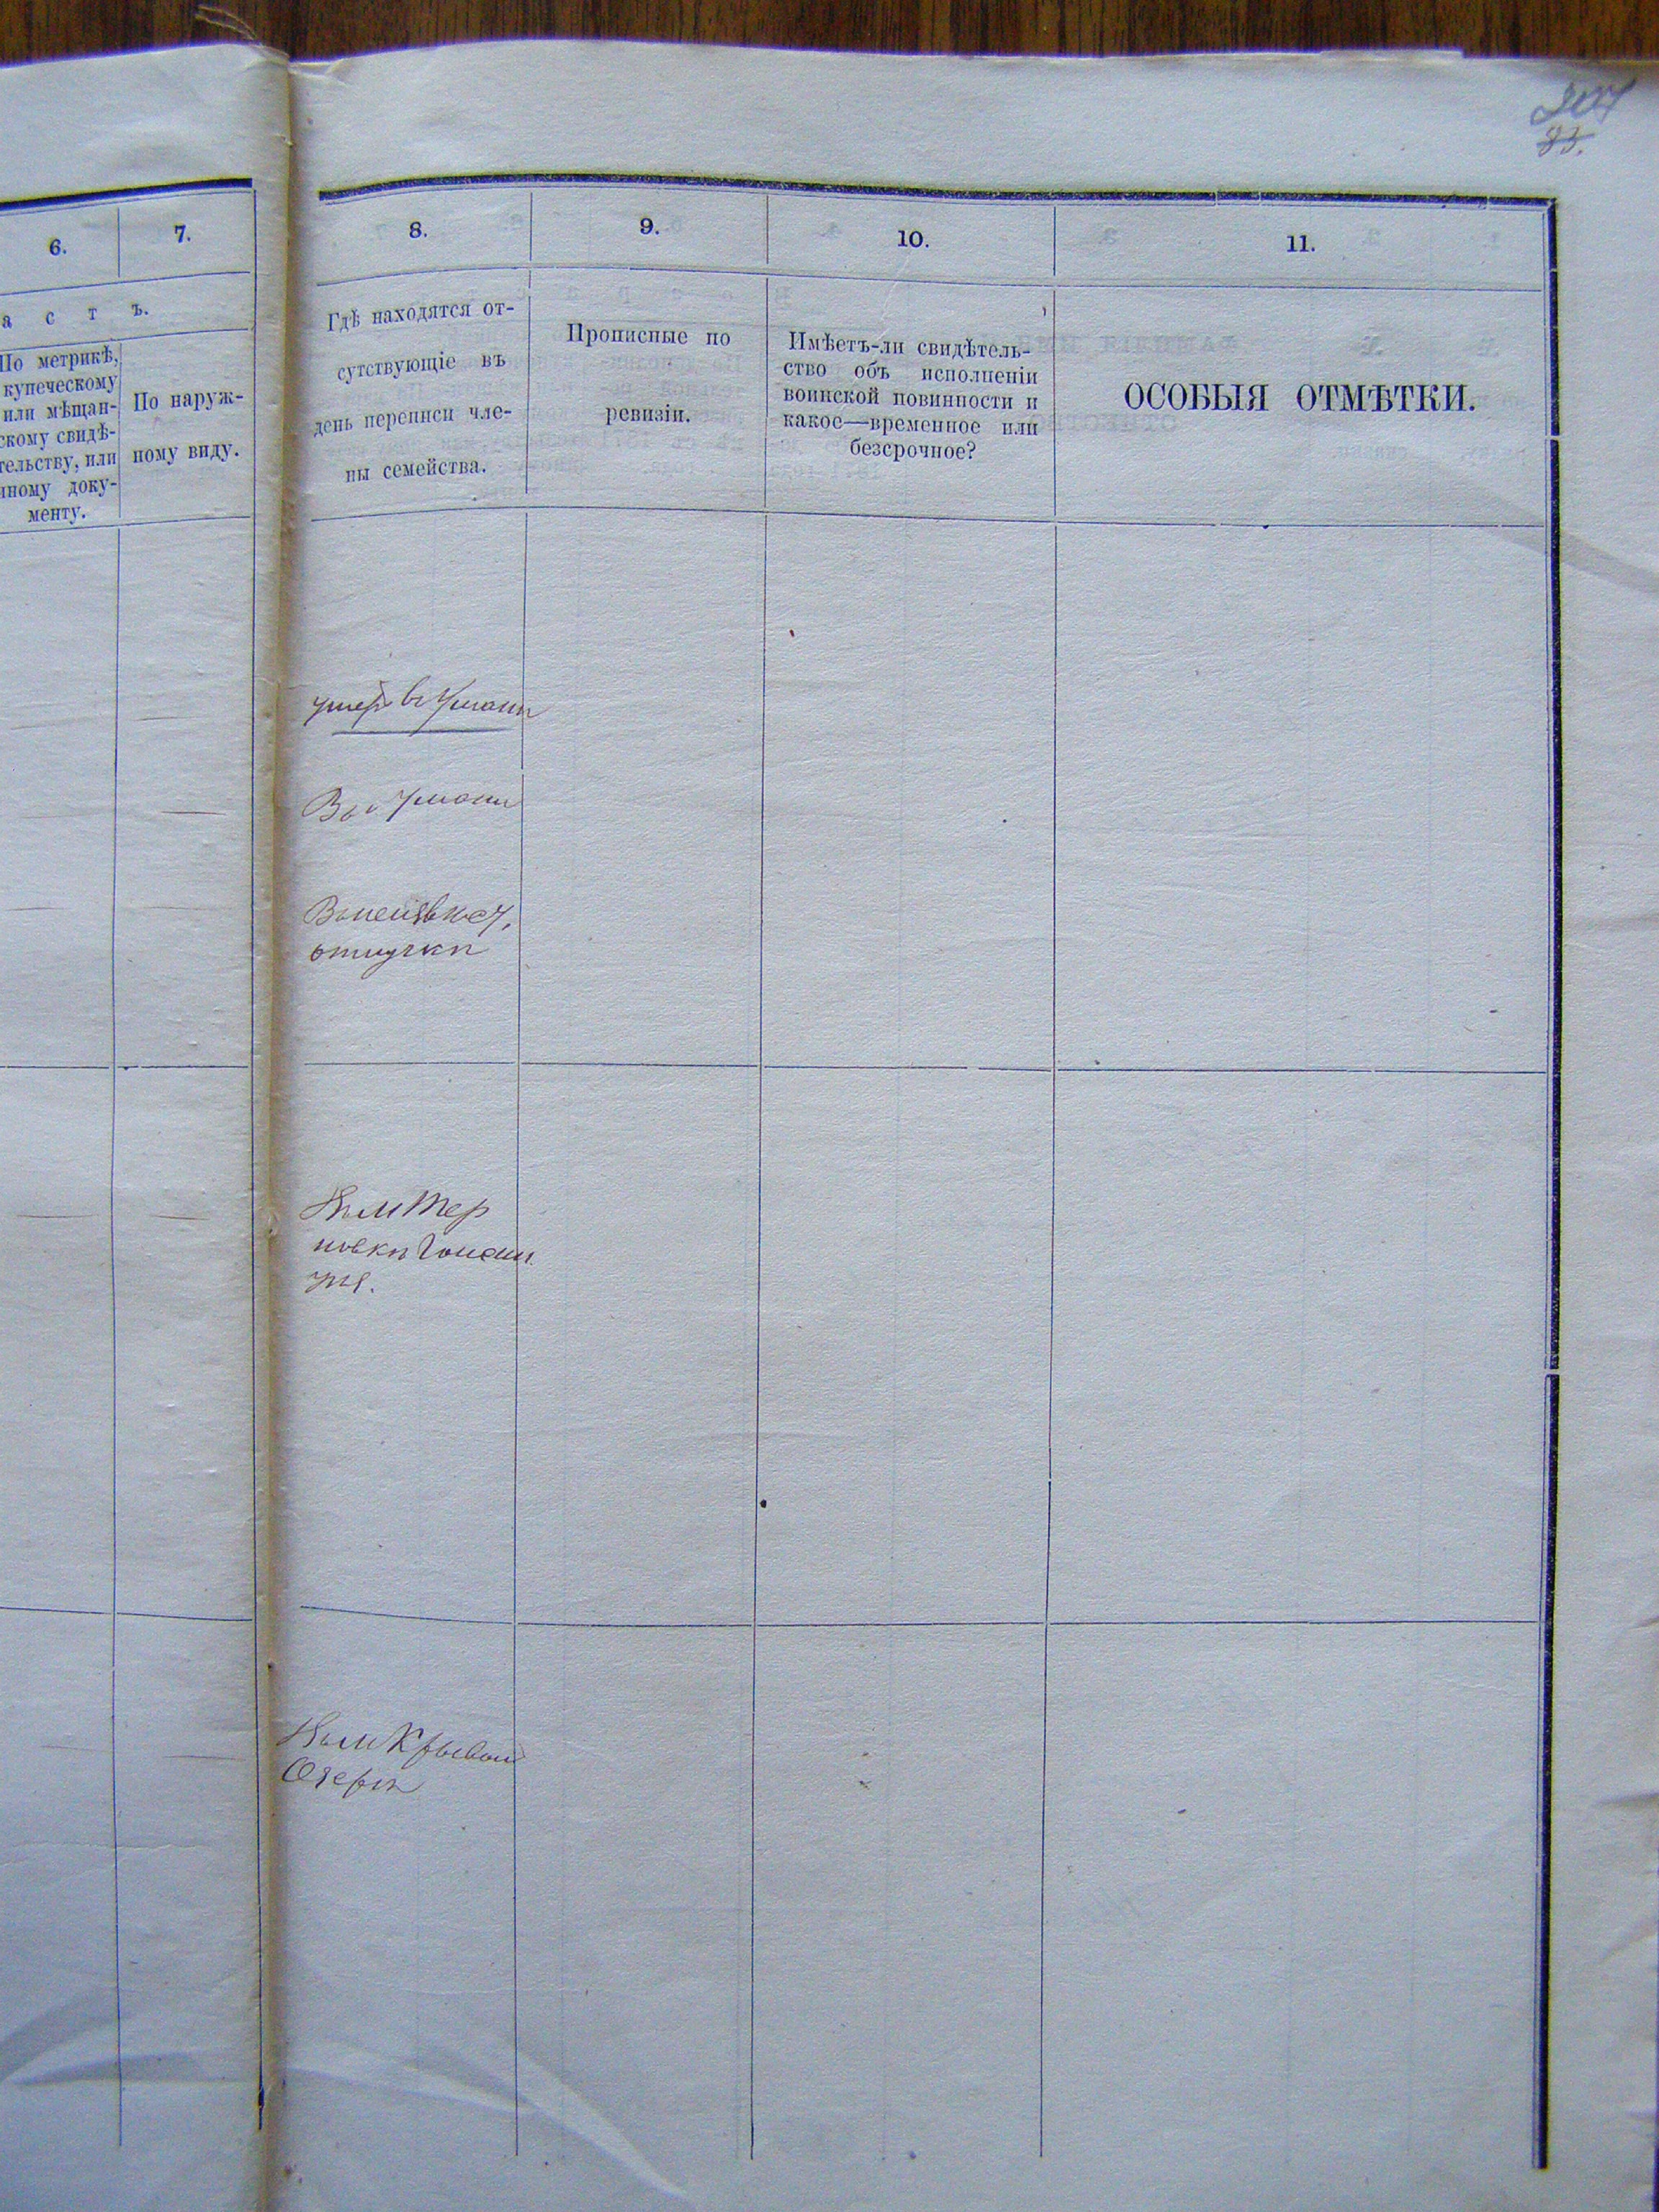 83.
6.
7.
8.
9.
10.
11.
а с т ъ.
По метрикѣ,
купеческому
или мѣщан-
скому свидѣ-
тельству, или
иному доку-
менту.
По наруж-
ному виду.
Гдѣ находятся от-
сутствующіе въ
день переписи чле-
ны семейства.
Прописные по
ревизіи.
Имѣетъ-ли свидѣтель-
ство объ исполненіи
воинской повинности и
какое—временное или
безсрочное?
ОСОБЫЯ ОТМѢТКИ.
умеръ въ Умани
Въ г Умани
отлучки
Въ м Тер
новки Гайсин.
уѣ.
Въ м Кривой
Озеръ